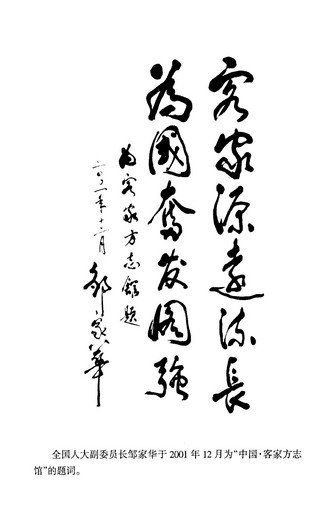 客家源遠流長
為國奮发图強
为客家方志館题
二〇〇一年十二月
邹家华
全国人大副委员长邹家华于 2001 年 12 月为“中国·客家方志
馆”的题词。